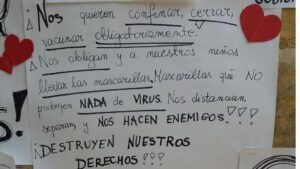 GOBIE
△ NOS quieren confinar, cerrar,
vacunar obligatoriamente.
△ Nos obligan y a nuestros niños
llevar las mascarillas. Mascarillas que NO
protegen NADA de VIRUS. Nos distancian,
separan, y NOS HACEN ENEMIGOS!!!
¡DESTRUYEN NUESTROS
DERECHOS!!!